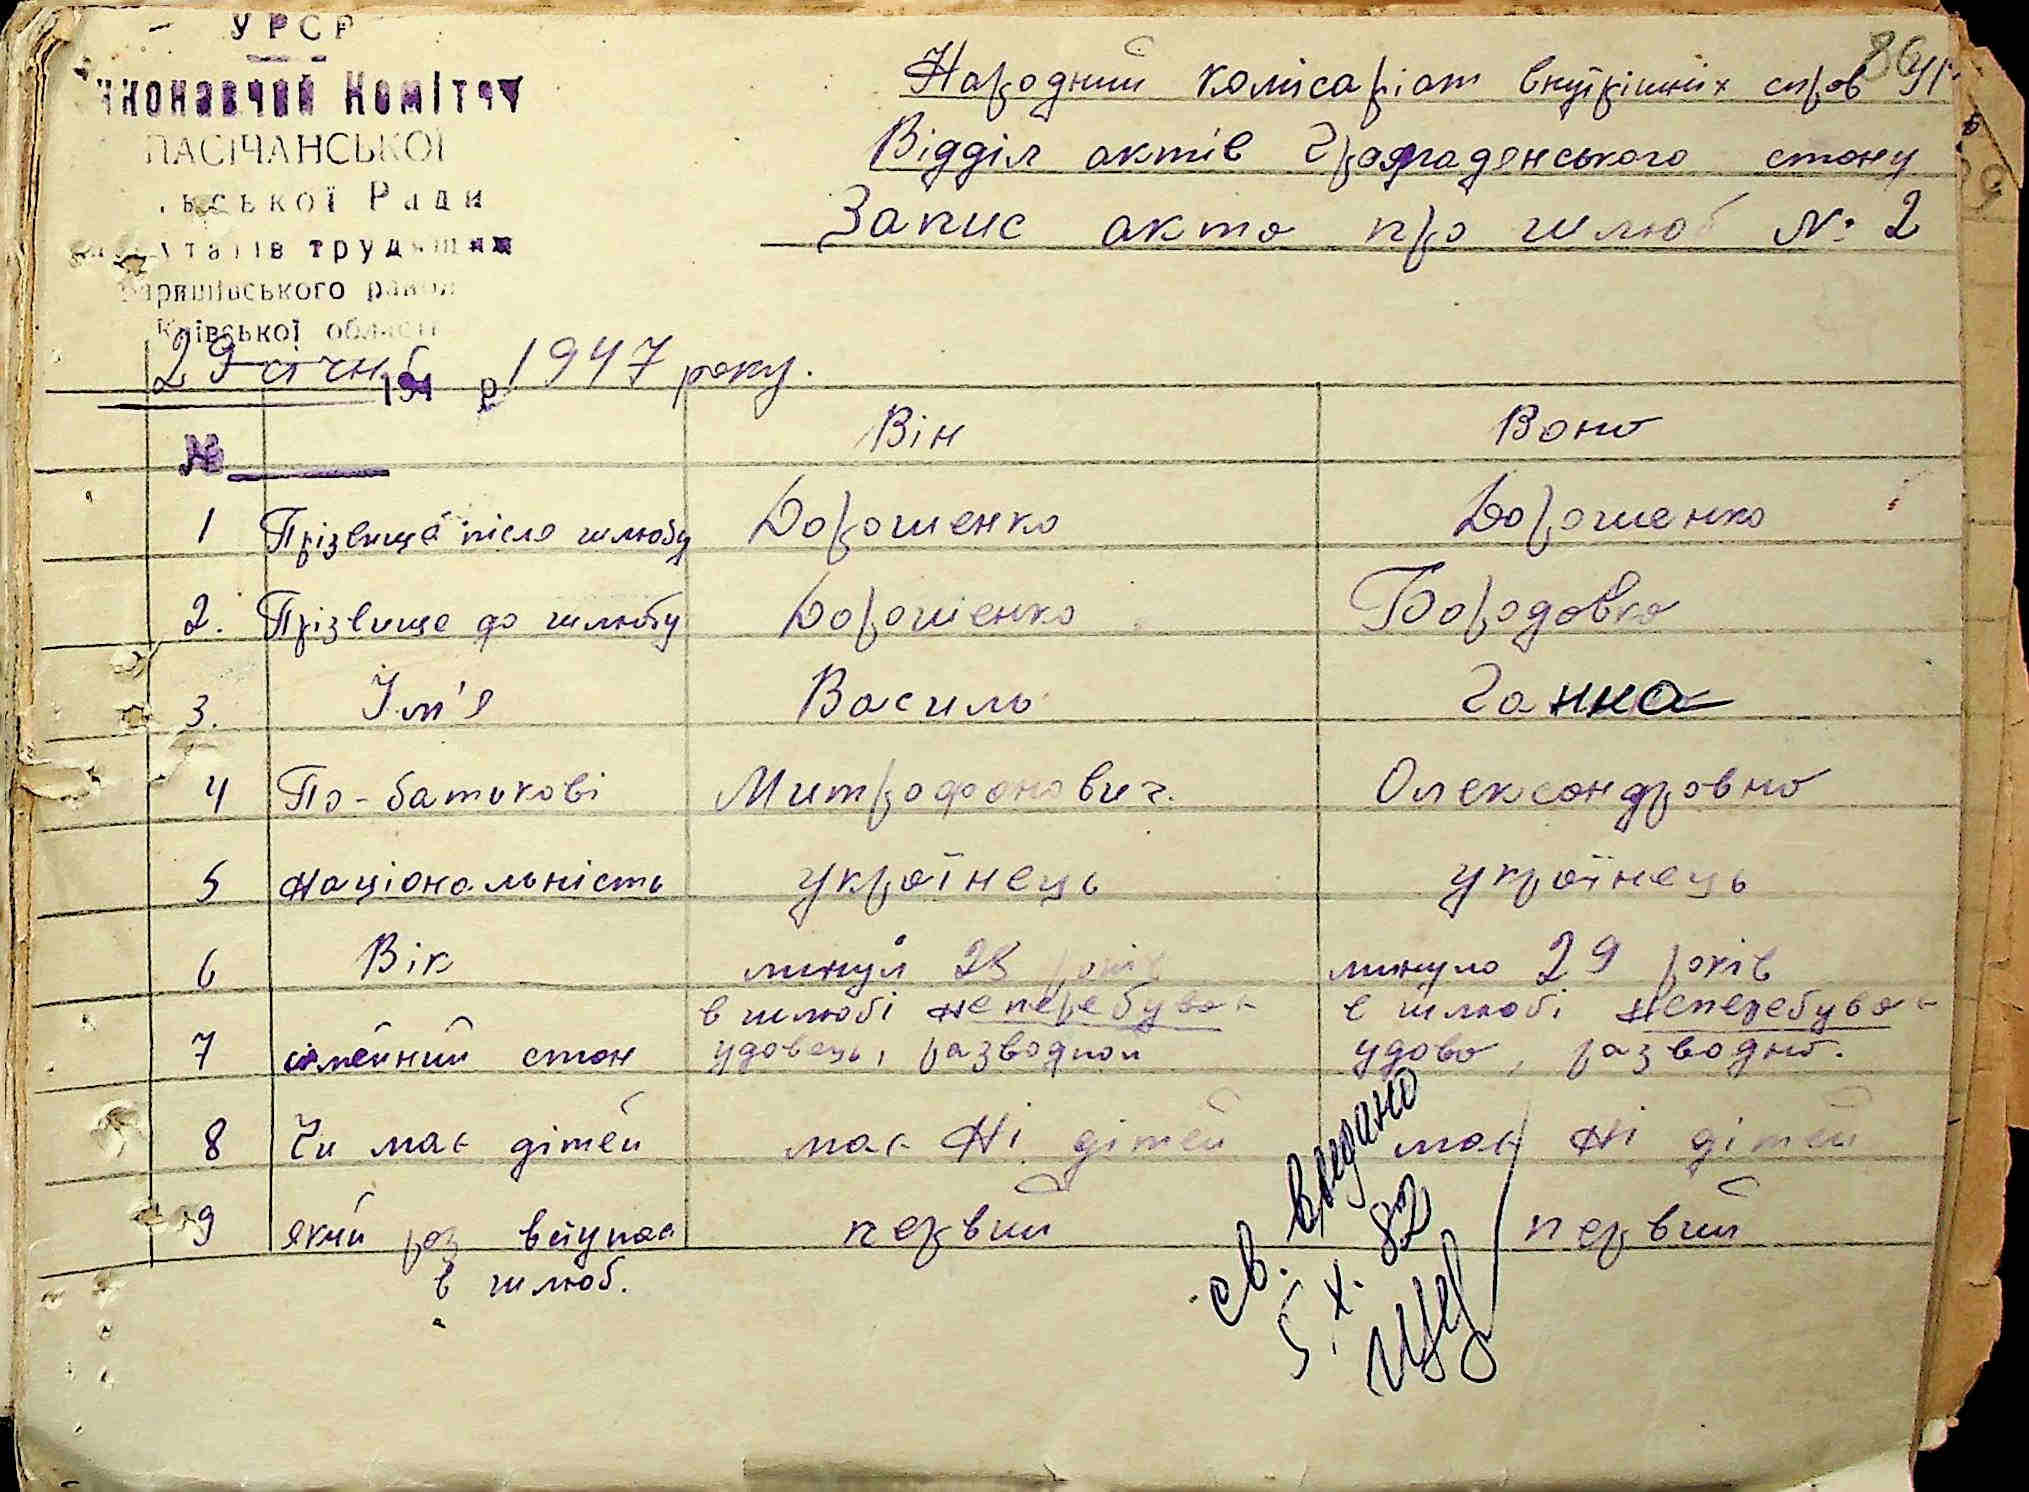 УРСР
иконавчий Комітет
ПАСІЧАНСЬКОЇ
льської Ради
депутатів трудящих
Баришівського району
Київської області
86
Народний комісаріат внутрішніх справ УР
Відділ актів Громаденського стану
Запис акта про шлюб №: 2
29 січня 194 р 1947 року.
№ Він Вона
1 Прізвище після шлюбу Дорошенко Дорошенко
2. Прізвище до шлюбу Дорошенко Бородавка
3. Ім'я Василь Ганна
4 По-батькові Митрофанович. Олександровна
5 Національність українець українець
6 Вік минул 23 років минуло 29 років
7 сімейний стан в шлюбі неперебував в шлюбі неперебува
удовець, разводной удова, разводна.
8 Чи має дітей має Ні дітей має Ні дітей
9 який раз вступає первий первий
в шлюб.
св. видано
5. X. 82